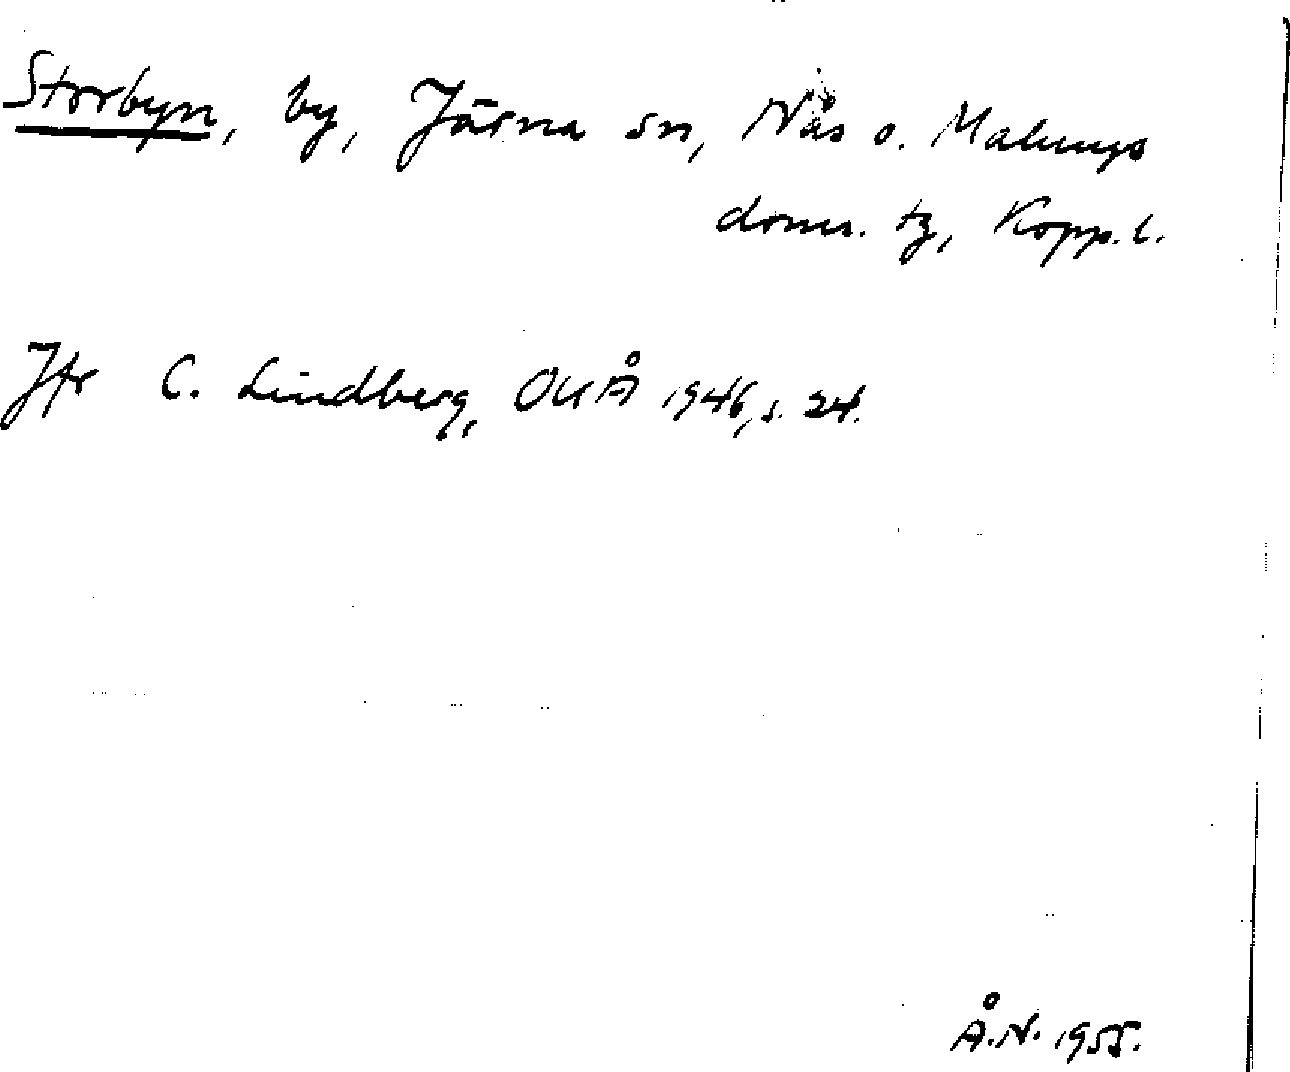 Storbyn, by, Järna sn, Nås o. Malungs
doms. tg, Kopp. l.
Jfr C. Lindberg, OUÅ 1946, s. 24.
Å.N. 1955.